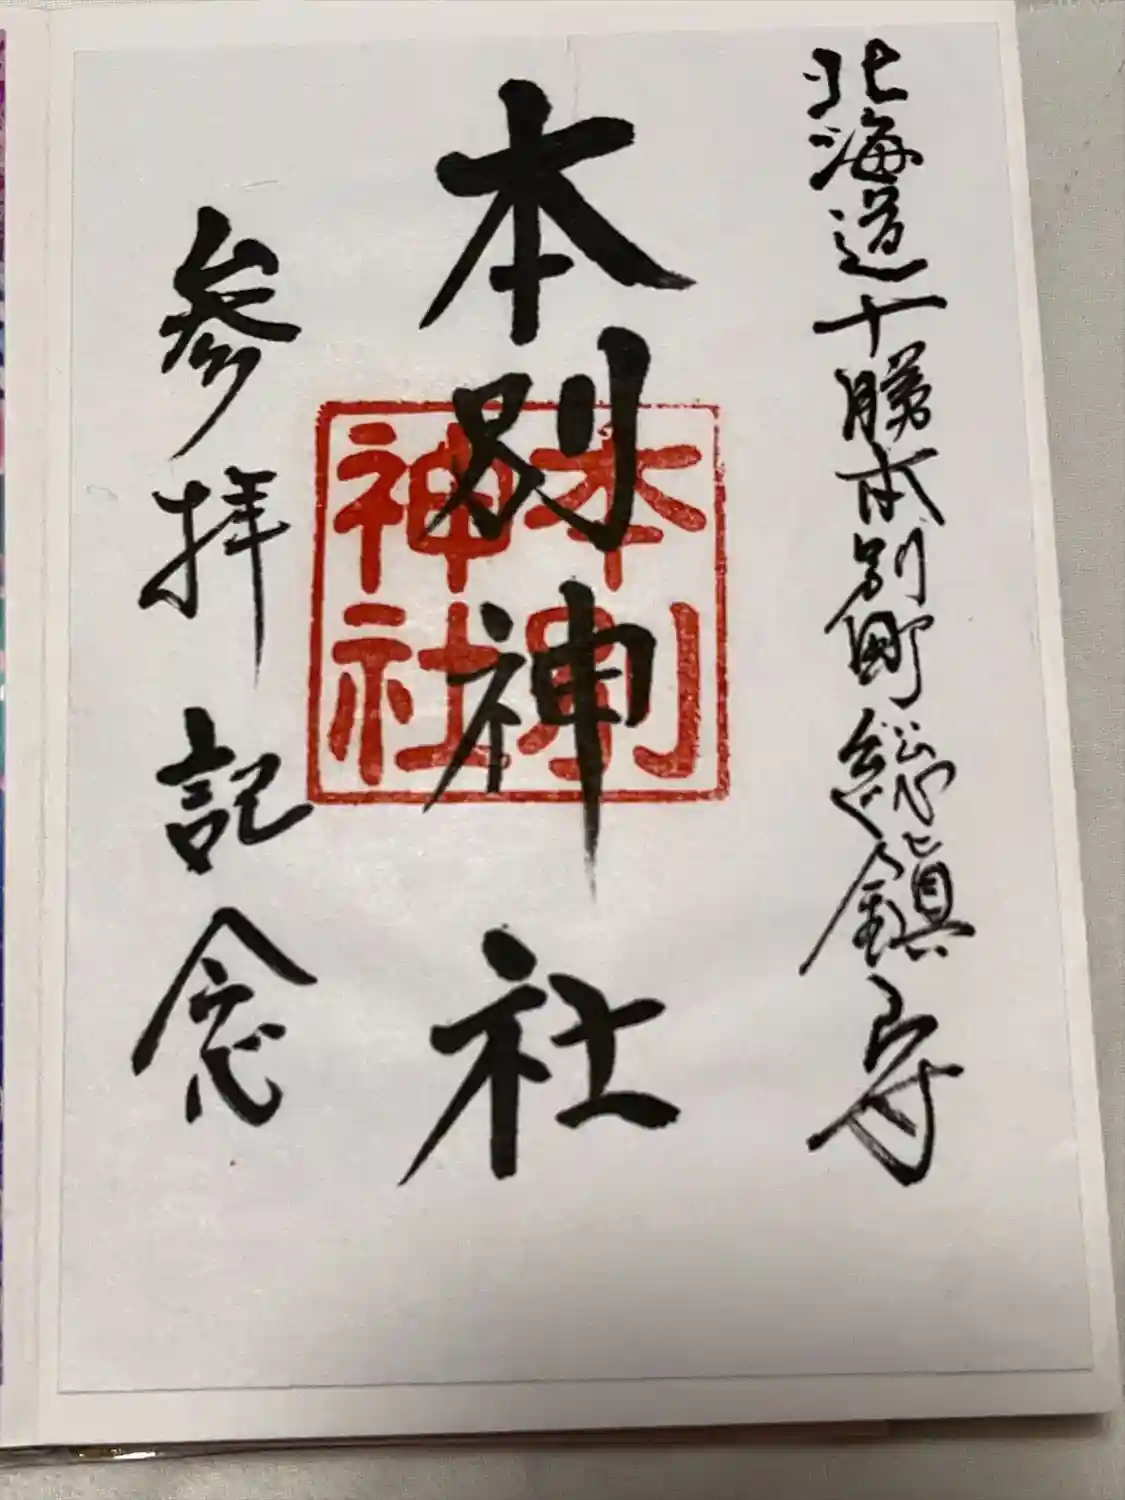 北海道十勝本別町総鎮守
本別神社
本別
神社
参拝記念